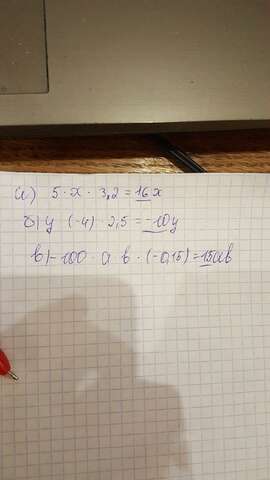 а) 5·x·3,2=16x
б) y (-4)·2,5=-10y
в) -100·a b·(-0,15)=15ab